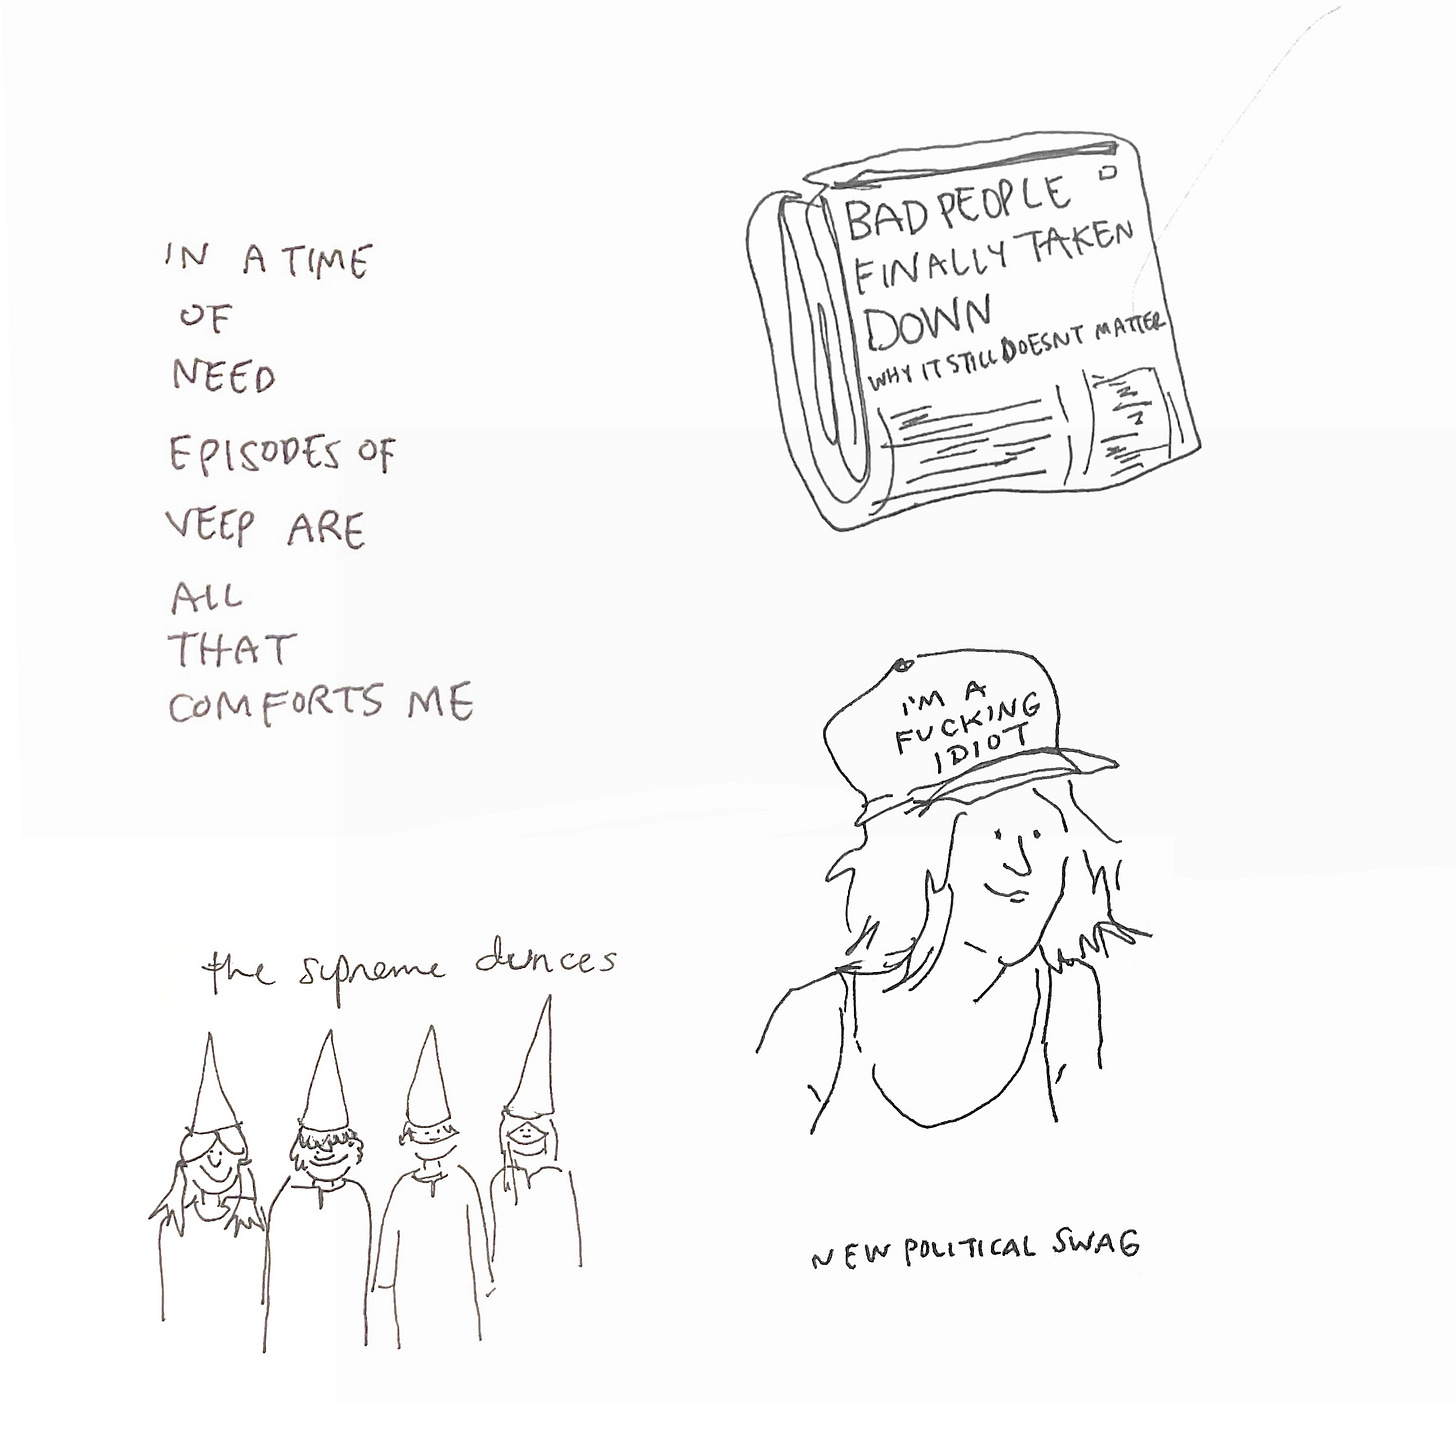 IN A TIME
OF
NEED
EPISODES OF
VEEP ARE
ALL
THAT
COMFORTS ME
BAD PEOPLE
FINALLY TAKEN
DOWN
WHY IT STILL DOESNT MATTER
I'M A
FUCKING
IDIOT
NEW POLITICAL SWAG
the supreme dunces